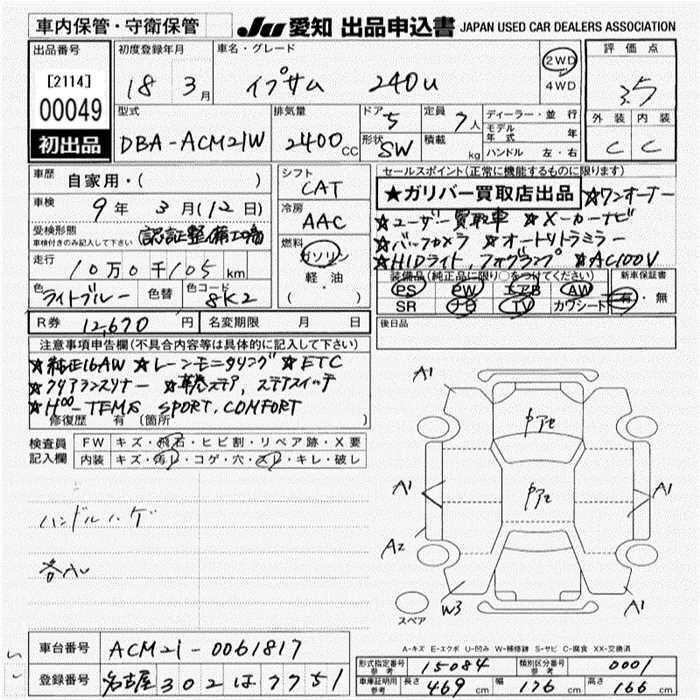 車内保管・守衛保管
JU 愛知 出品申込書 JAPAN USED CAR DEALERS ASSOCIATION
出品番号 初度登録年月 車名・グレード 2WD 評価点
[2114] 18 3月 イプサム 240u 4WD 3.5
00049 型式 排気量 ドア 5 定員 7人 ディーラー・並行 外装 内装
モデル年式 年
初出品 DBA-ACM21W 2400cc 形状 SW 積載 kg ハンドル 左・右 C C
車歴 自家用・( ) シフト CAT セールスポイント(正常に機能するものに限ります)
★ガリバー買取店出品 ★ワンオーナー
車検 9年 3月(12日) 冷房 AAC ★ユーザー買取車 ★メーカーナビ
受検形態 車検付きのみ記入して下さい 認証整備工場 燃料 ガソリン ★バックカメラ ★オートリトラミラー
走行 10万0千105km 軽・油 ★HIDライト、フォグランプ ★AC100V
・( )
装備品(純正品に限り○をつけてください) 新車保証書
色 ライトブルー 色替 色コード 8K2 PS PW エアB AW 有・無
SR ナビ TV カワシート
R券 12,670円 名変期限 月 日 後日品
注意事項申告欄(不具合内容等は具体的に記入して下さい)
★純正16AW ★レーンモニタリング ★ETC
★クリアランスソナー ★革巻ステア、ステアスイッチ
★H∞-TEMS SPORT,COMFORT
修復歴 有 (箇所 )
検査員 FW キズ・飛石・ヒビ割・リペア跡・X要
記入欄 内装 キズ・汚レ・コゲ・穴・スレ・キレ・破レ
ハンドルハゲ
A1
A1
A1
A2
W3
A1
スペア
A-キズ E-エクボ U-凹み W-補修跡 S-サビ C-腐食 XX-交換済
車台番号 ACM21-0061817
形式指定番号 参考 15084 類別区分番号 参考 0001
登録番号 名古屋302は7751
車庫証明用 参考 長さ 469cm 幅 176cm 高さ 166cm